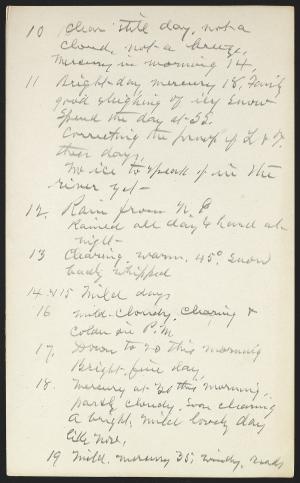 10 Clear still day, not a
cloud, not a breeze,
Mercury in morning 14,
11 Bright day, mercury 18, Fairly
good sleighing of icy snow
Spend the day at S.S.
Correcting the proof of L & F.
these days,
No ice to speak of in the
river yet —
12. Rain from N. E
Rained all day & hard at
night —
13 Clearing, warm. 45° Snow
badly whipped
14 & 15 Mild days
16 mild. Cloudy, clearing &
colder in P.M
17, Down to 20 this morning
Bright, fine day,
18. Mercury at 20 this morning,
partly cloudy. Soon clearing
A bright, mild lovely day
like Nov.
19 Mild. mercury 35; windy, roads